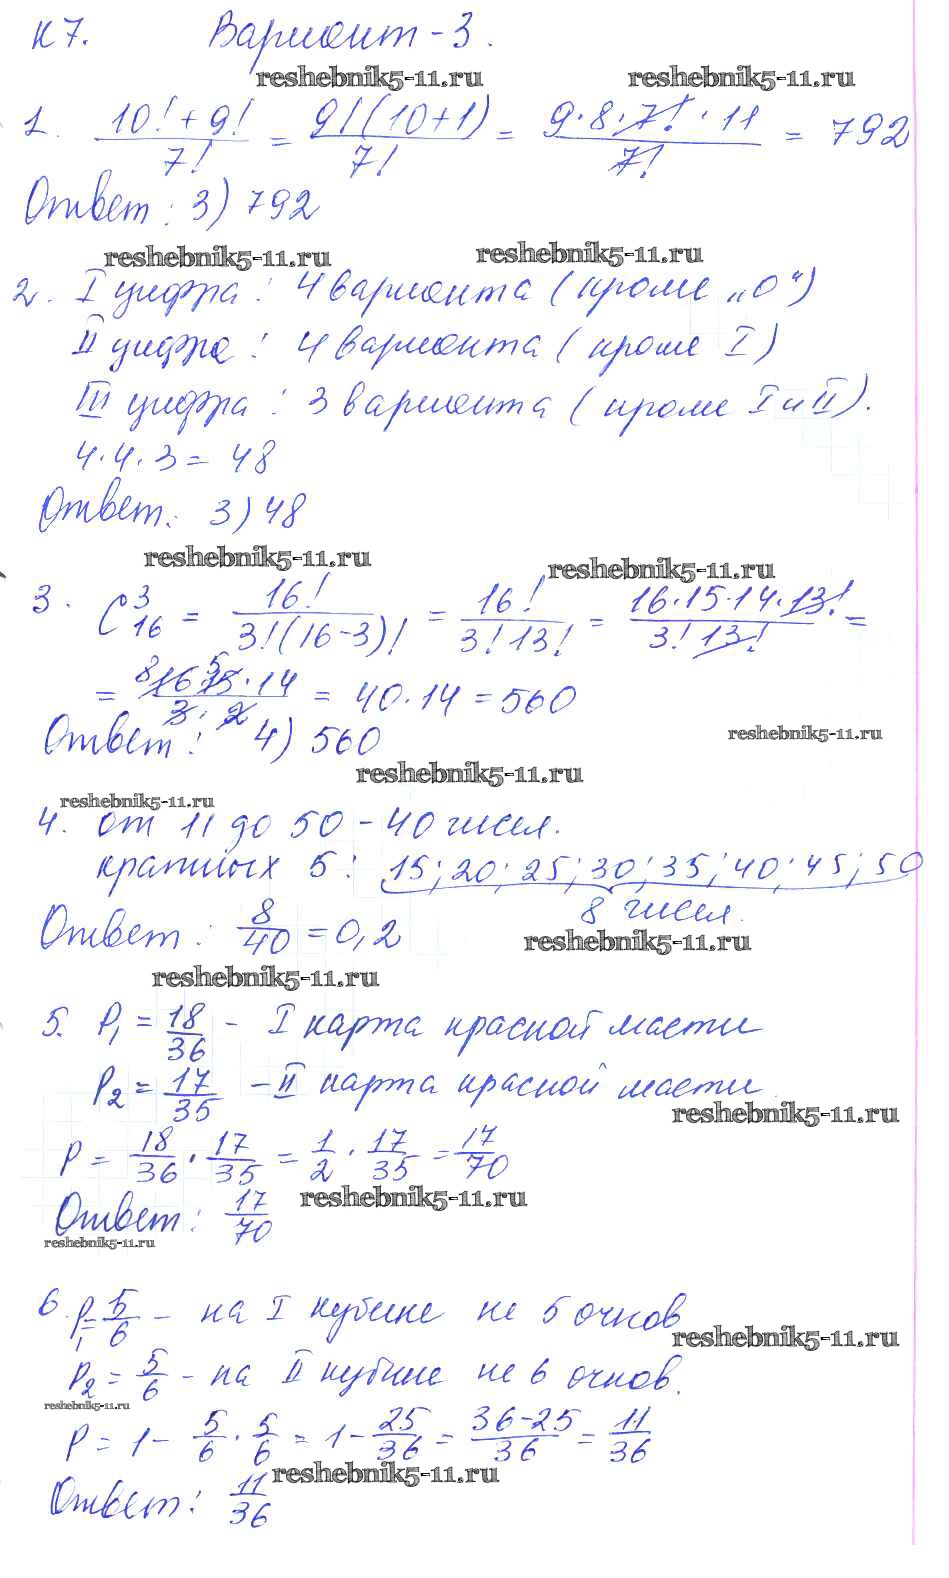 К 7. Вариант - 3.
reshebnik5-11.ru reshebnik5-11.ru
1. (10! + 9!)/7! = 9!(10+1)/7! = (9·8·7!·11)/7! = 792
Ответ: 3) 792
reshebnik5-11.ru reshebnik5-11.ru
2. I цифра: 4 варианта (кроме „0“)
II цифра: 4 варианта (кроме I)
III цифра: 3 варианта (кроме I и II).
4·4·3 = 48
Ответ: 3) 48
reshebnik5-11.ru reshebnik5-11.ru
3. C₁₆³ = 16!/(3!(16-3)!) = 16!/(3!13!) = (16·15·14·13!)/(3!13!) =
= (⁸16 ⁵15·14)/(3·2) = 40·14 = 560
Ответ: 4) 560 reshebnik5-11.ru
reshebnik5-11.ru
reshebnik5-11.ru
4. от 11 до 50 - 40 чисел.
кратных 5: 15; 20; 25; 30; 35; 40; 45; 50
8 чисел.
Ответ: 8/40 = 0,2 reshebnik5-11.ru
reshebnik5-11.ru
5. P₁ = 18/36 - I карта красной масти
P₂ = 17/35 - II карта красной масти
reshebnik5-11.ru
P = 18/36 · 17/35 = 1/2 · 17/35 = 17/70
reshebnik5-11.ru
Ответ: 17/70
reshebnik5-11.ru
6. P₁ = 5/6 - на I кубике не 5 очков
reshebnik5-11.ru
P₂ = 5/6 - на II кубике не 6 очков.
reshebnik5-11.ru
P = 1 - 5/6 · 5/6 = 1 - 25/36 = (36-25)/36 = 11/36
reshebnik5-11.ru
Ответ: 11/36